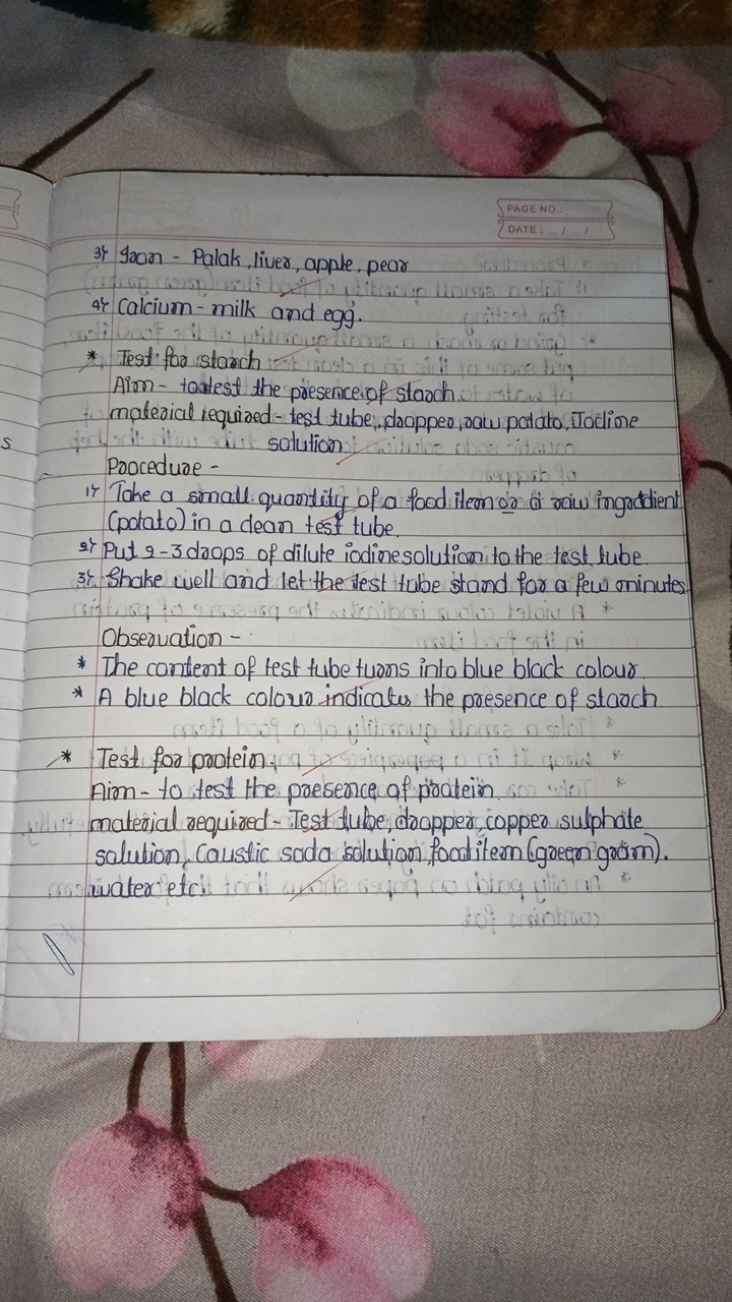 PAGE NO.:
DATE: / /
3) Iron - Palak, liver, apple, pear
4) Calcium - milk and egg.
* Test for starch
Aim - to test the presence of starch.
material required - test tube, dropper, raw potato, Iodine
solution
Procedure -
1) Take a small quantity of a food item or a raw ingreddient
(potato) in a clean test tube.
2) Put 2-3 drops of dilute iodine solution to the test tube.
3) Shake well and let the test tube stand for a few minutes
Observation -
* The content of test tube turns into blue black colour.
* A blue black colour indicates the presence of starch
* Test for protein
Aim - to test the presence of protein.
material required - Test tube, dropper, copper sulphate
solution, Caustic soda solution, food item (green gram).
water etc.
s